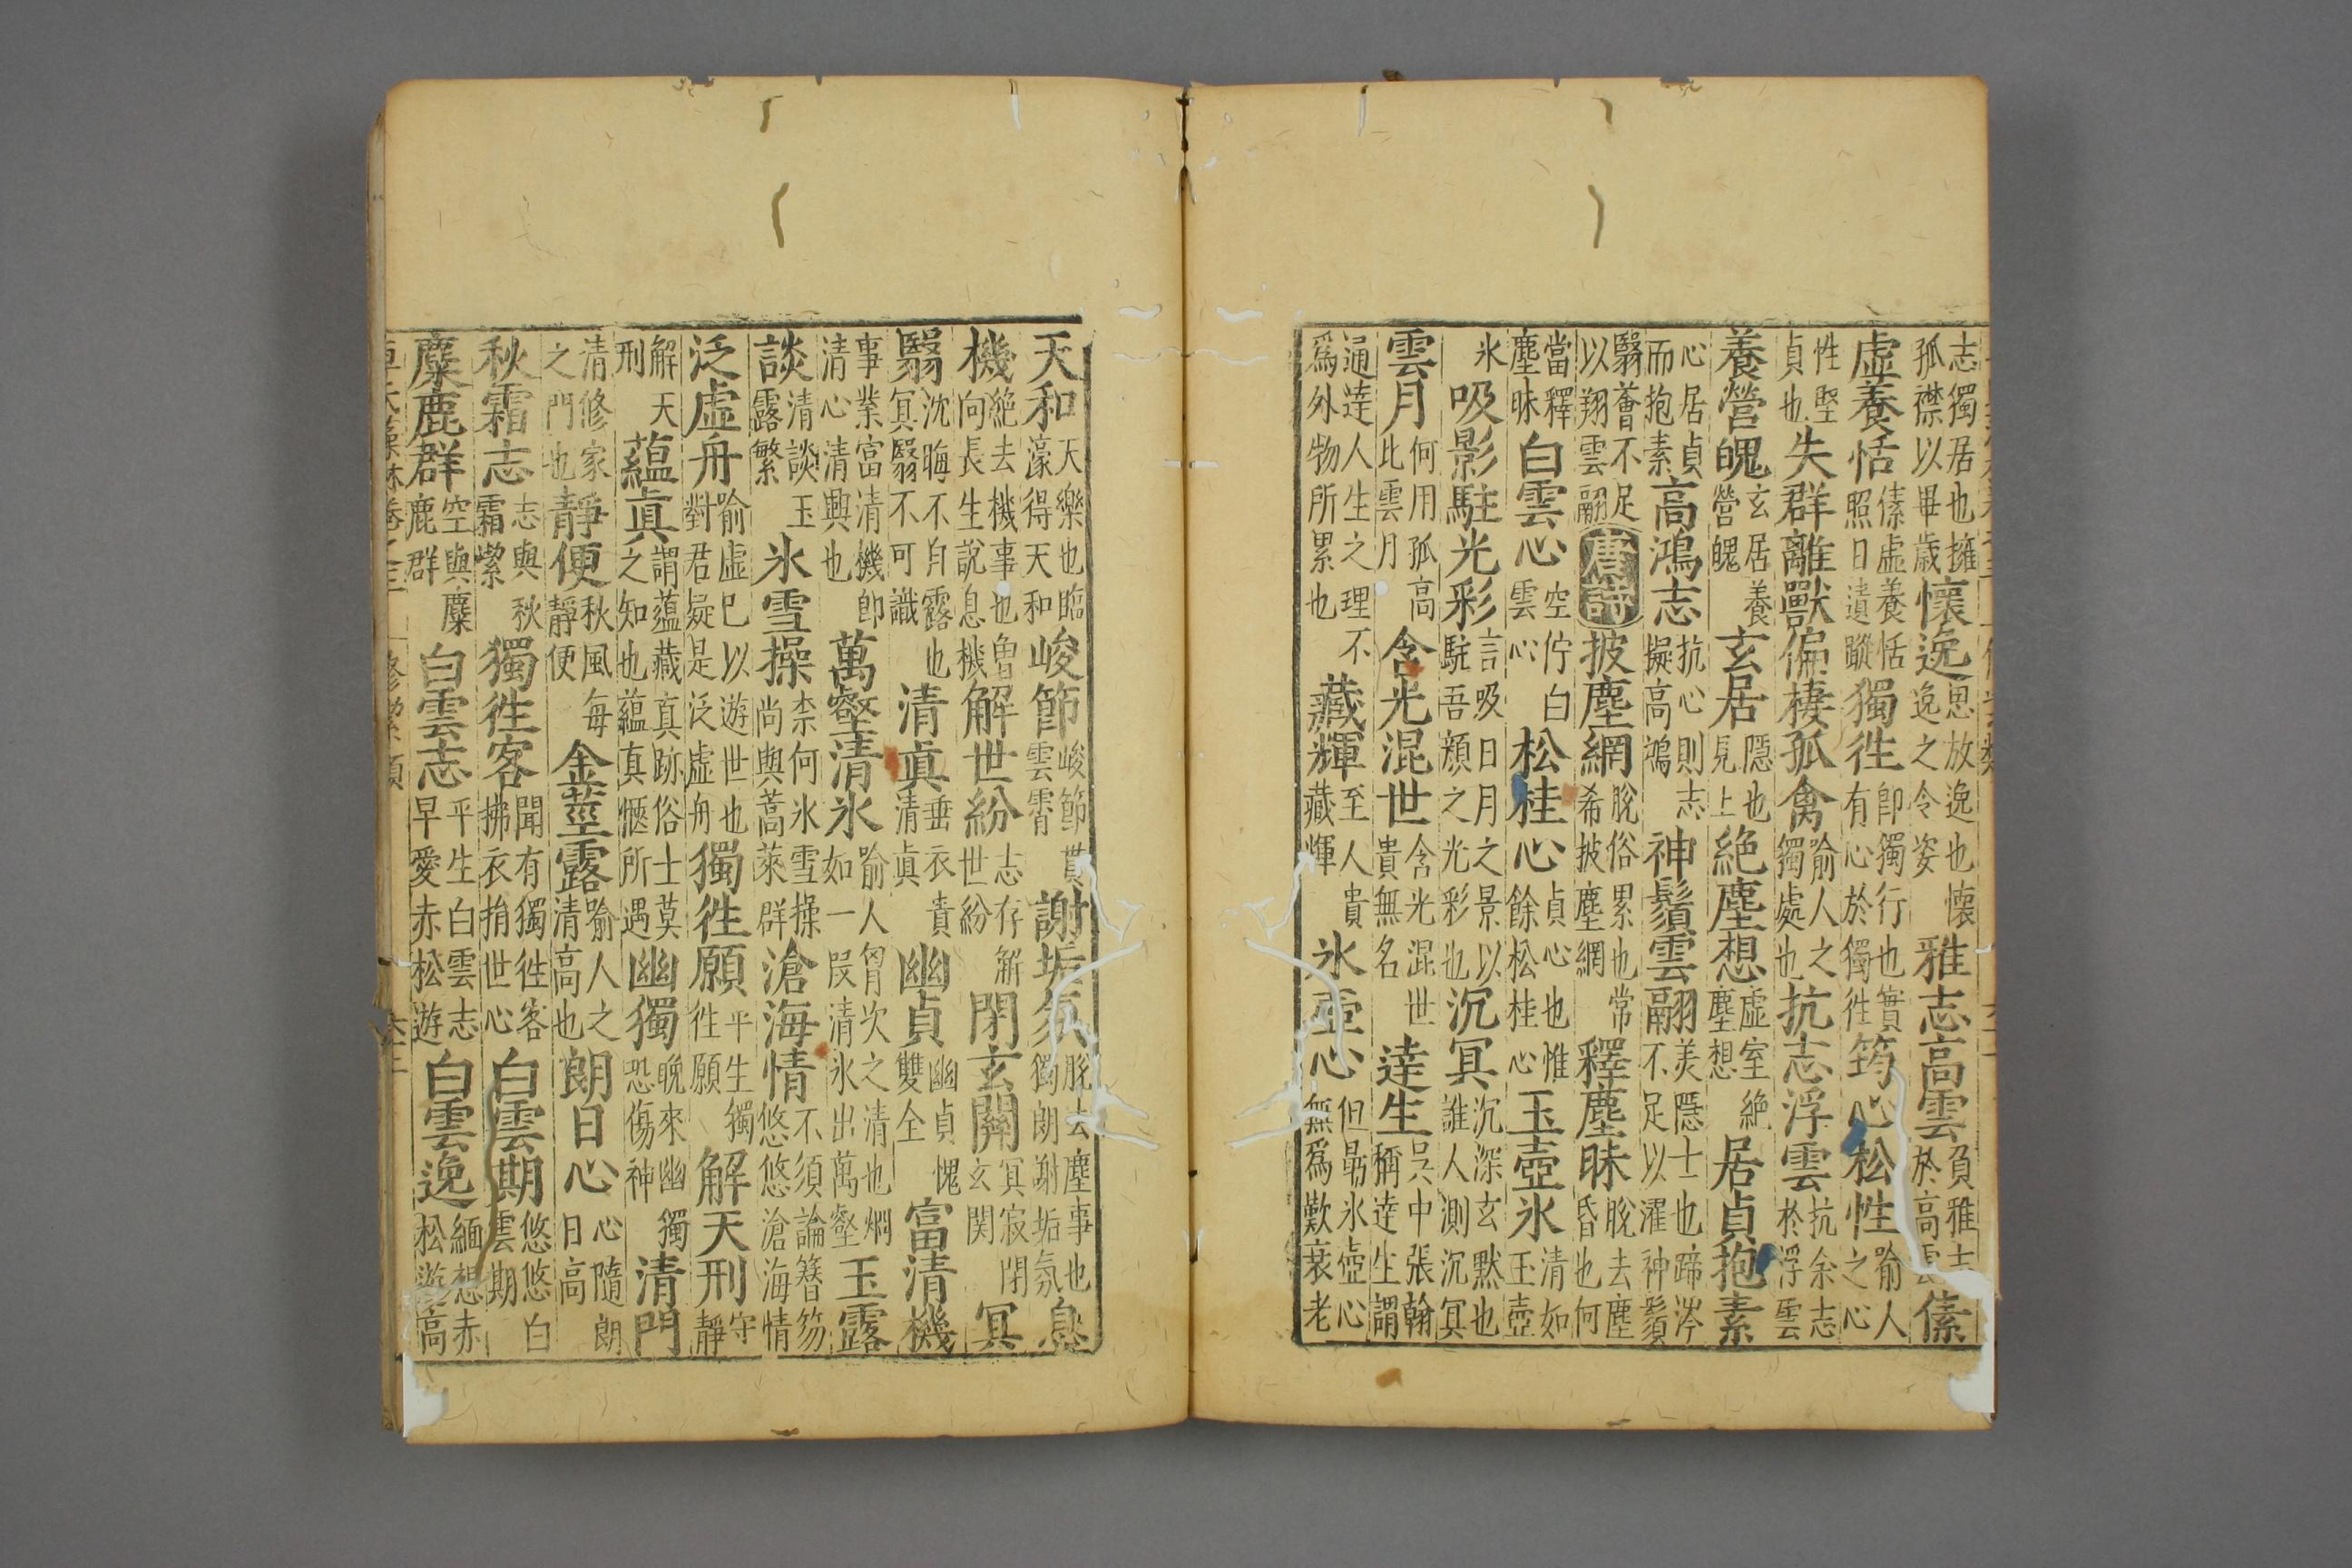 志獨居也擁孤襟以畢歲懷逸思放逸也懷逸之令姿雅志高雲負雅志於高雲傃
虛養恬傃虛養恬照日遺蹤獨徃卽獨行也實有心於獨徃筠心松性喻人之心
性堅貞也失群離獸偏棲孤禽喻人之獨處也抗志浮雲抗余志於浮雲
養營魄玄居養營魄玄居隱也見上絶塵想虛室絶塵想居貞抱素
心居貞而抱素高鴻志抗心則志擬高鴻神鬚雲翮美隱士也蹄涔不足以濯神鬚
翳薈不足以翔雲翮唐詩披塵網脫俗累也常希披塵網釋塵昧脫去塵昏也何
當釋塵昧白雲心空佇白雲心松桂心貞心也惟餘松桂心玉壺氷清如玉壺
氷吸影駐光彩言吸日月之景以駐吾顔之光彩也沉冥沉深玄默也誰人測沉冥
雲月何用孤高此雲月含光混世含光混世貴無名達生吳中張翰稱達生謂
通達人生之理不爲外物所累也藏輝至人貴藏輝氷壺心但勗氷壺心無爲歎衰老
天和天樂也臨濠得天和峻節峻節貫雲霄謝垢氛脫去塵事也獨朗謝垢氛息
機絶去機事也魯向長生說息機解世紛志存解世紛閉玄關冥寂閉玄関冥
翳沈晦不自露也冥翳不可識清眞垂衣貴清眞幽貞幽貞愧雙全富清機
事業富清機卽清心清興也萬壑清氷喻人胷次之清也烱如一叚清氷出萬壑玉露
談清談玉露繁氷雪操柰何氷雪操尚與蒿萊群滄海情不須論簪笏悠悠滄海情
泛虛舟喻虛巳以遊世也對君疑是泛虛舟獨徃願平生獨徃願解天刑守靜
解天刑蘊眞謂蘊藏真跡俗士莫之知也蘊真愜所遇幽獨晚來幽獨恐傷神清門
清修家之門也靜便秋風每靜便金莖露喻人之清高也朗日心心隨朗日高
秋霜志志與秋霜潔獨徃客聞有獨徃客拂衣捐世心白雲期悠悠白雲期
麋鹿群空與麋鹿群白雲志平生白雲志早愛赤松遊白雲逸緬想赤松遊高